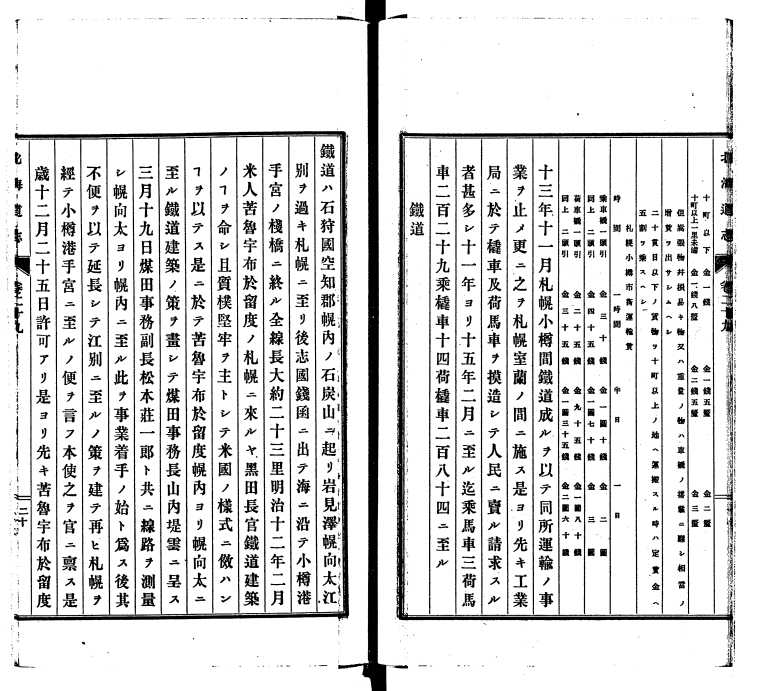 北海道志　卷二十九
十町以下　金一錢　金一錢五釐　金二釐
十町以上一里未滿　金一錢八釐　金二錢五釐　金三釐
但嵩張物并損易キ物又ハ重量ノ物ハ車機ノ搭載ニ難シ相當ノ
增賃ヲ出サシムヘシ
二十貫目以下ノ貨物ヲ十町以上ノ地ヘ運搬スル時ハ定賃金ヘ
五割ヲ乘スヘシ
札幌小樽市街運輸賃
時間　一時間　半日　一日
乘車橇一頭引　金三十錢　金一圓十錢　金二圓
同上二頭引　金四十五錢　金一圓七十錢　金三圓
荷車橇一頭引　金二十五錢　金九十五錢　金一圓八十錢
同上二頭引　金三十五錢　金一圓三十五錢　金二圓六十錢
十三年十一月札幌小樽間鐵道成ルヲ以テ同所運輸ノ事
業ヲ止メ更ニ之ヲ札幌室蘭ノ間ニ施ス是ヨリ先キ工業
局ニ於テ橇車及荷馬車ヲ摸造シテ人民ニ賣ル請求スル
者甚多シ十一年ヨリ十五年二月ニ至ル迄乘馬車三荷馬
車二百二十九乘橇車十四荷橇車二百八十四ニ至ル
鐵道
鐵道ハ石狩國空知郡幌內ノ石炭山ニ起リ岩見澤幌向太江
別ヲ過キ札幌ニ至リ後志國錢函ニ出テ海ニ沿テ小樽港
手宮ノ棧橋ニ終ル全線長大約二十三里明治十二年二月
米人苦魯宇布於留度ノ札幌ニ來ルヤ黑田長官鐵道建築
ノヿヲ命シ且質樸堅牢ヲ主トシテ米國ノ樣式ニ倣ハン
ヿヲ以テス是ニ於テ苦魯宇布於留度幌內ヨリ幌向太ニ
至ル鐵道建築ノ策ヲ畫シテ煤田事務長山內堤雲ニ呈ス
三月十九日煤田事務副長松本莊一郞ト共ニ線路ヲ測量
シ幌向太ヨリ幌內ニ至ル此ヲ事業着手ノ始ト爲ス後其
不便ヲ以テ延長シテ江別ニ至ルノ策ヲ建テ再ヒ札幌ヲ
經テ小樽港手宮ニ至ルノ便ヲ言フ本使之ヲ官ニ禀ス是
歲十二月二十五日許可アリ是ヨリ先キ苦魯宇布於留度
北海道志　卷二十九